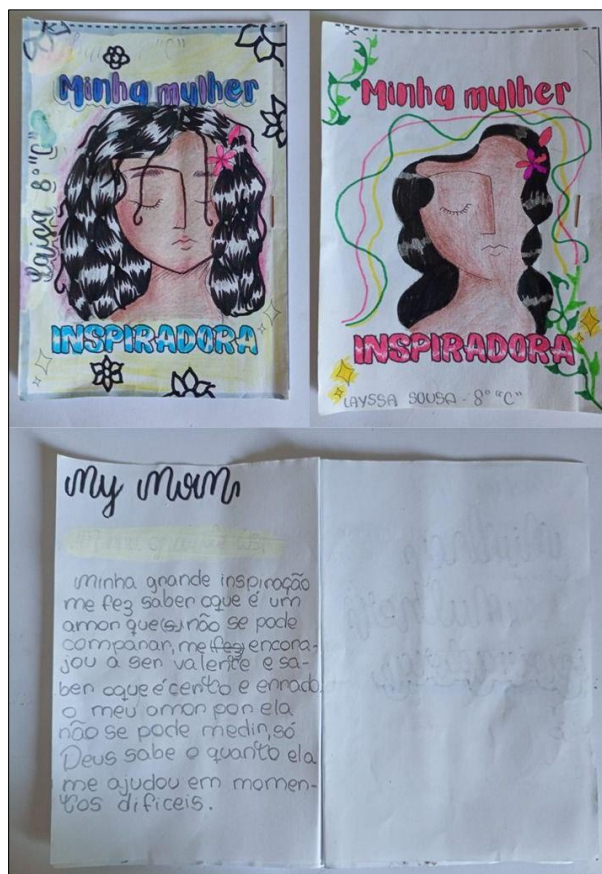 Minha mulher
INSPIRADORA
Laisa 8° "C"
Minha mulher
INSPIRADORA
LAYSSA SOUSA - 8° "C"
My Mom
Minha grande inspiração
me fez saber oque é um
amor que(s) não se pode
comparar, me (fez) encora-
jou a ser valente e sa-
ber oque é certo e errado
o meu amor por ela
não se pode medir, só
Deus sabe o quanto ela
me ajudou em momen-
tos dificeis.